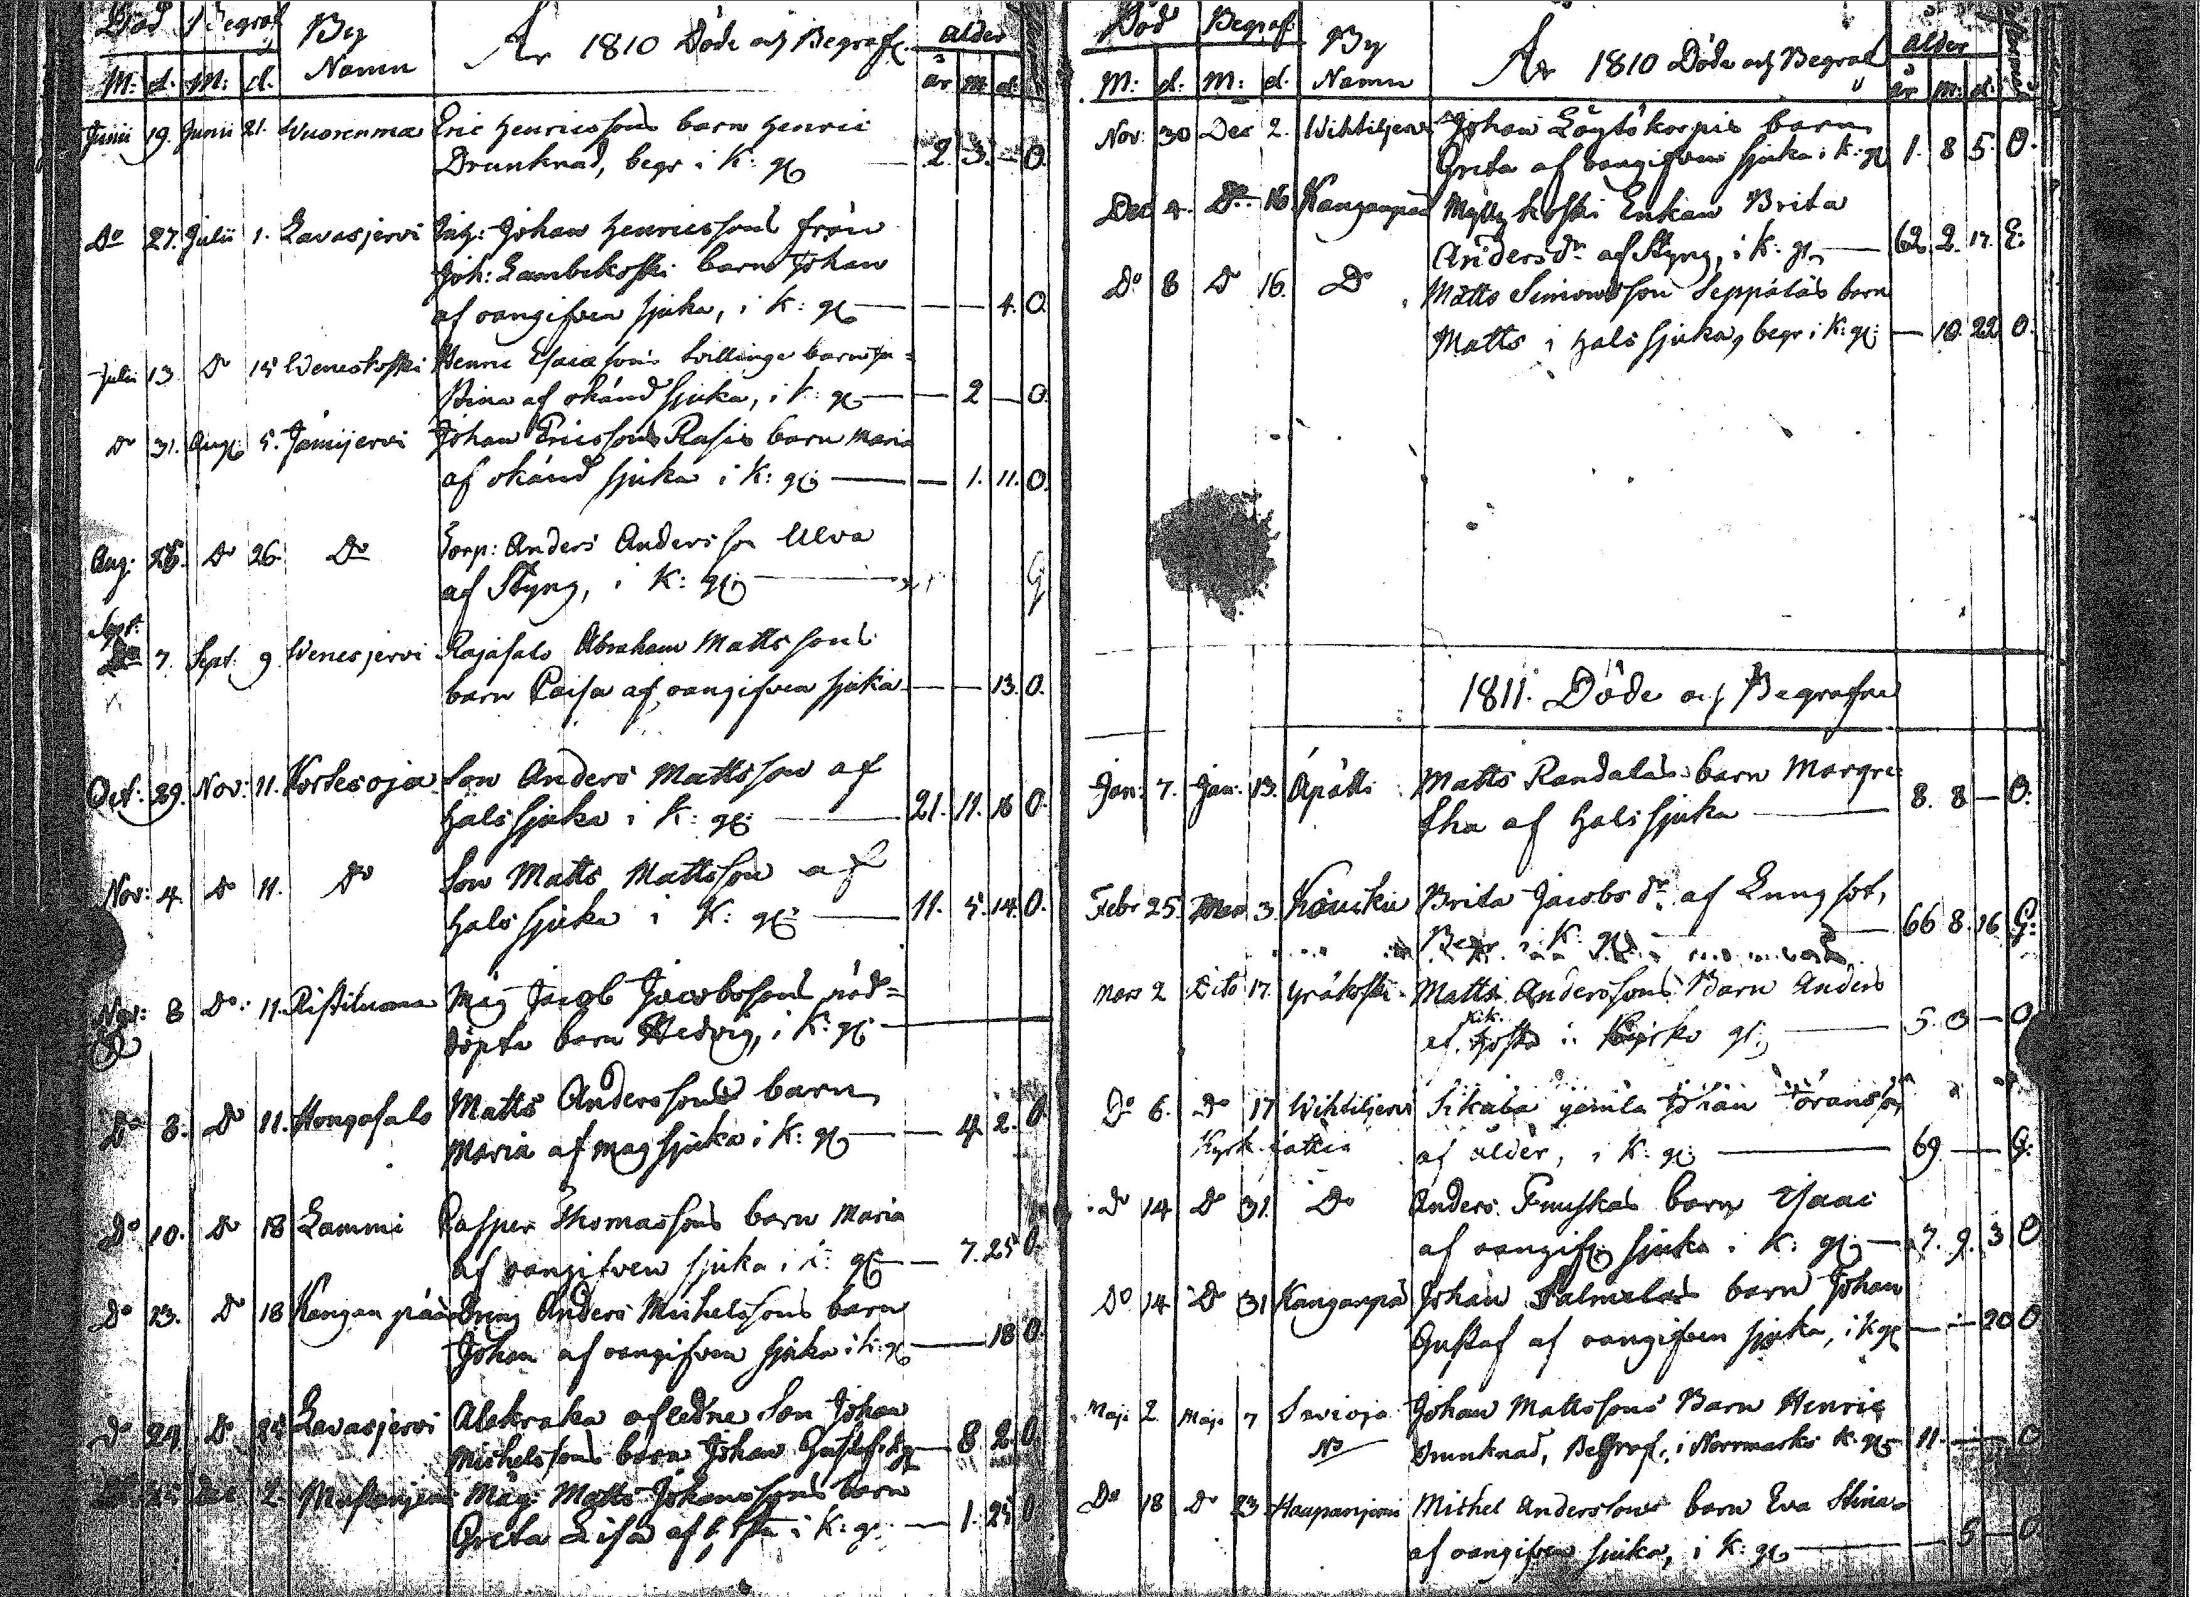 Död Begraf By Namn År 1810 Döde och Begrafn. ålder
M: d. M: d. år m d.
Junii 19. Junii 21. Wuorenmaa Eric Henricssons barn Henric
Drunknad, begr i K: g. — 2. 3. — O.
Do 27. Julii 1. Lavasjervi Inh: Johan Henricssons från
Joh: Lambikoski barn Johan
af oangifven sjuka, i K: g. — — 4. O.
Julii 13 Do 15 Weneskoski Henric Esaiæsons tvillinge barn
Stina af okänd sjuka, i K: g. — — 2 — O.
Do 31. Aug. 5. Jämijervi Johan Ericssons Rasis barn Maria
af okänd sjuka i K: g. — — 1. 11. O.
Aug. 26. Do Do Corp: Anders Andersson Ulva
af Styng, i K: g. — G
Sept.
7. Sept. 9 Wenesjervi Rajasalo Abraham Mattssons
barn Caisa af oangifven sjuka — — 13. O.
Oct: 29. Nov: 11. Kortesoja Son Anders Mattsson af
Halssjuka i K: g. — 21. 11. 16 O.
Nov: 4. Do 11. Do Son Matts Mattsson af
Halssjuka i K: g. — 11. 5. 14. O.
Nov: 8 Do: 11. Ristiluoma Måg Jacob Jacobssons nöd=
döpta barn Hedvig, i K: g. —
Do 8. Do 11. Hongosalo Matts Anderssons barn
Maria af magsjuka i K: g. — — 4. 2. O
Do 10. Do 18 Lammi Casper Thomassons barn Maria
af oangifven sjuka i K: g. — — 7. 25 O.
Do 23. Do 18 Kangan pää Dräng Anders Michelssons barn
Johan af oangifven sjuka i K: g. — 18 O.
Do 24 Do 25 Lavasjervi Alakraka afledne Son Johan
Michelssons barn Johan Gustaf — 8 2. O
2. Mustanjerv Måg Matts Johanssons barn
Greta Lisa af i K: g. — 1. 25 O
Död Begraf By Namn År 1810 Döde och Begraf ålder
M: d: M: d. år m: d.
Nov: 30 Dec 2. Wihtiljervi Johan Löytökorpis barn
Greta af oangifven sjuka i K: g. 1. 8 5. O.
Dec 4. Do 16. Kanganpää Myllykoski Enkan Brita
Andersdr af Styng, i K: g. — 62. 2. 17. E.
Do 8 Do 16. Do Matts Simonsson Seppäläs barn
Matts i halssjuka, begr i K: g. — 10. 22 O.
1811. Döde och Begrafne
Jan: 7. Jan: 13. Apätti Matts Randalas barn Margre
tha af halssjuka — 8. 8 — O.
Febr 25. Mars 3. Kauckii Brita Jacobs dr. af Lungsot,
Begr. i K: g. — 66 8. 16. G:
Mars 2 Dito 17. Yräkoski Matts Anderssons Barn Anders
af Kik hosta i Kyrko g. — 5. 3 — O
Do 6. Do 17 Wihtiljervi Sikaba gamla
af ålder, i K: g. — 69 — G.
Do 14 Do 31. Do Anders barn Isaac
af oangif. sjuka i K: g. — 7. 9. 3 O
Do 14 Do 31 Kanganpä Johan Palmelas barn Johan
Gustaf af oangifven sjuka, i K g. — — 20 O
Maji 2 Maji 7 Johan Mattssons Barn Henric
Drunknad, Begraf. i Norrmarks K. g. 11. — — O
Do 18 Do 23 Haapanjervi Michel Anderssons barn Eva Stina
af oangifven sjuka, i K: g. — — 5 — O.